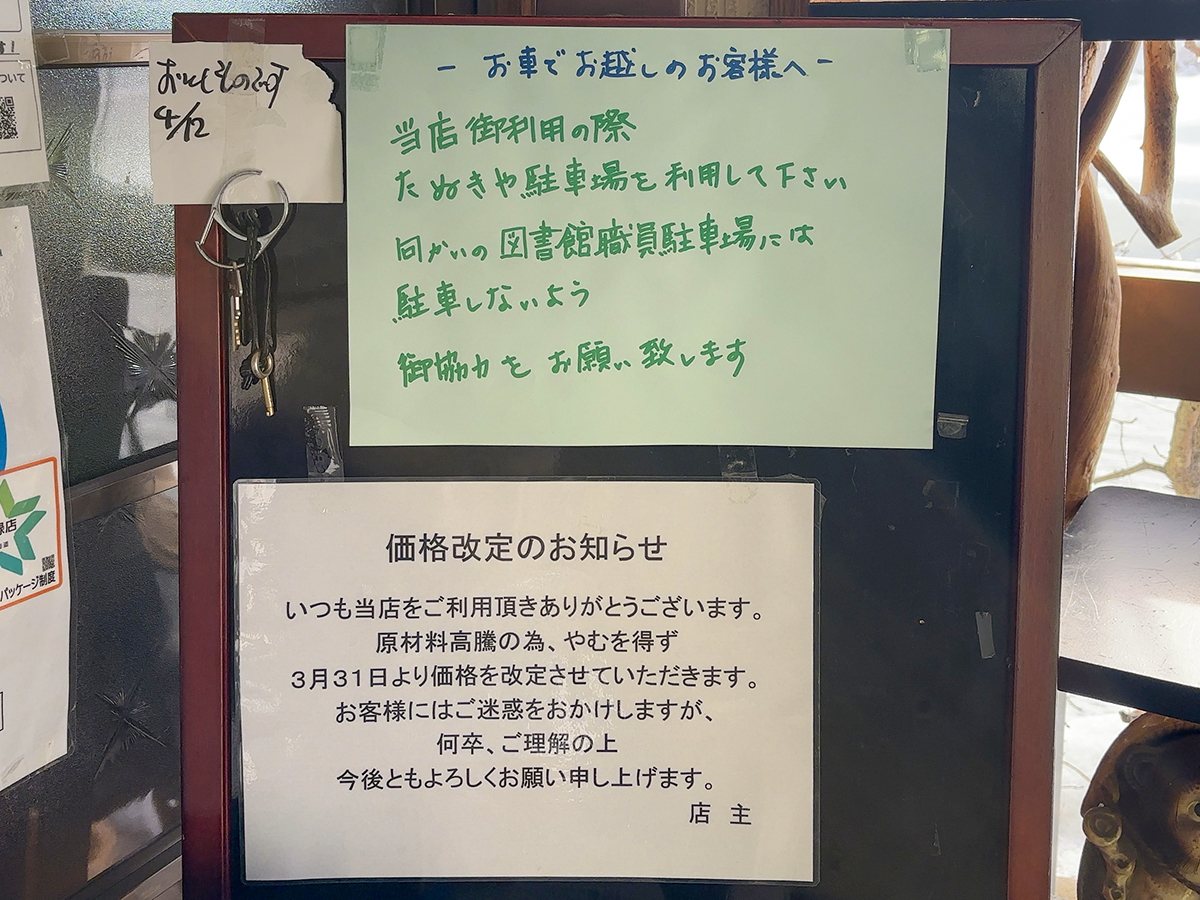 ついて
おとしものです
4/12
緑店
パッケージ制度
− お車でお越しのお客様へ −
当店御利用の際
たぬきや駐車場を利用して下さい
向かいの図書館職員駐車場には
駐車しないよう
御協力をお願い致します
価格改定のお知らせ
いつも当店をご利用頂きありがとうございます。
原材料高騰の為、やむを得ず
３月３１日より価格を改定させていただきます。
お客様にはご迷惑をおかけしますが、
何卒、ご理解の上
今後ともよろしくお願い申し上げます。
店　主